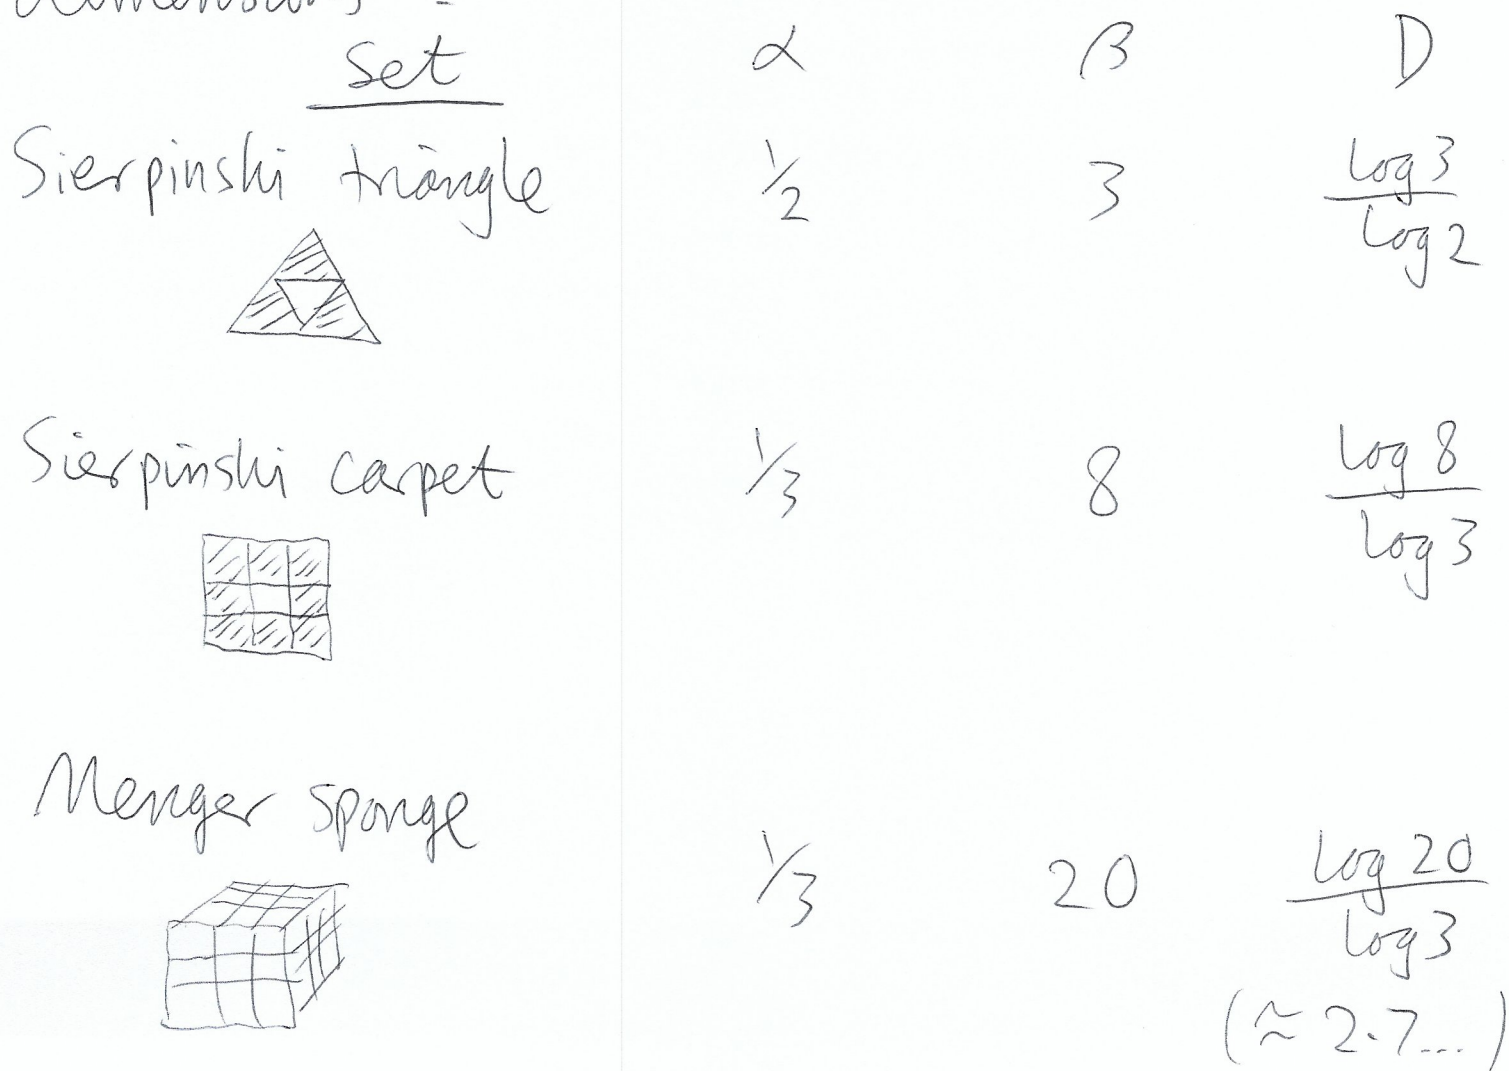 dimensions :
Set α β D
Sierpinski triangle 1/2 3 log 3 / log 2
Sierpinski carpet 1/3 8 log 8 / log 3
Menger sponge
1/3 20 log 20 / log 3
(≈ 2.7...)